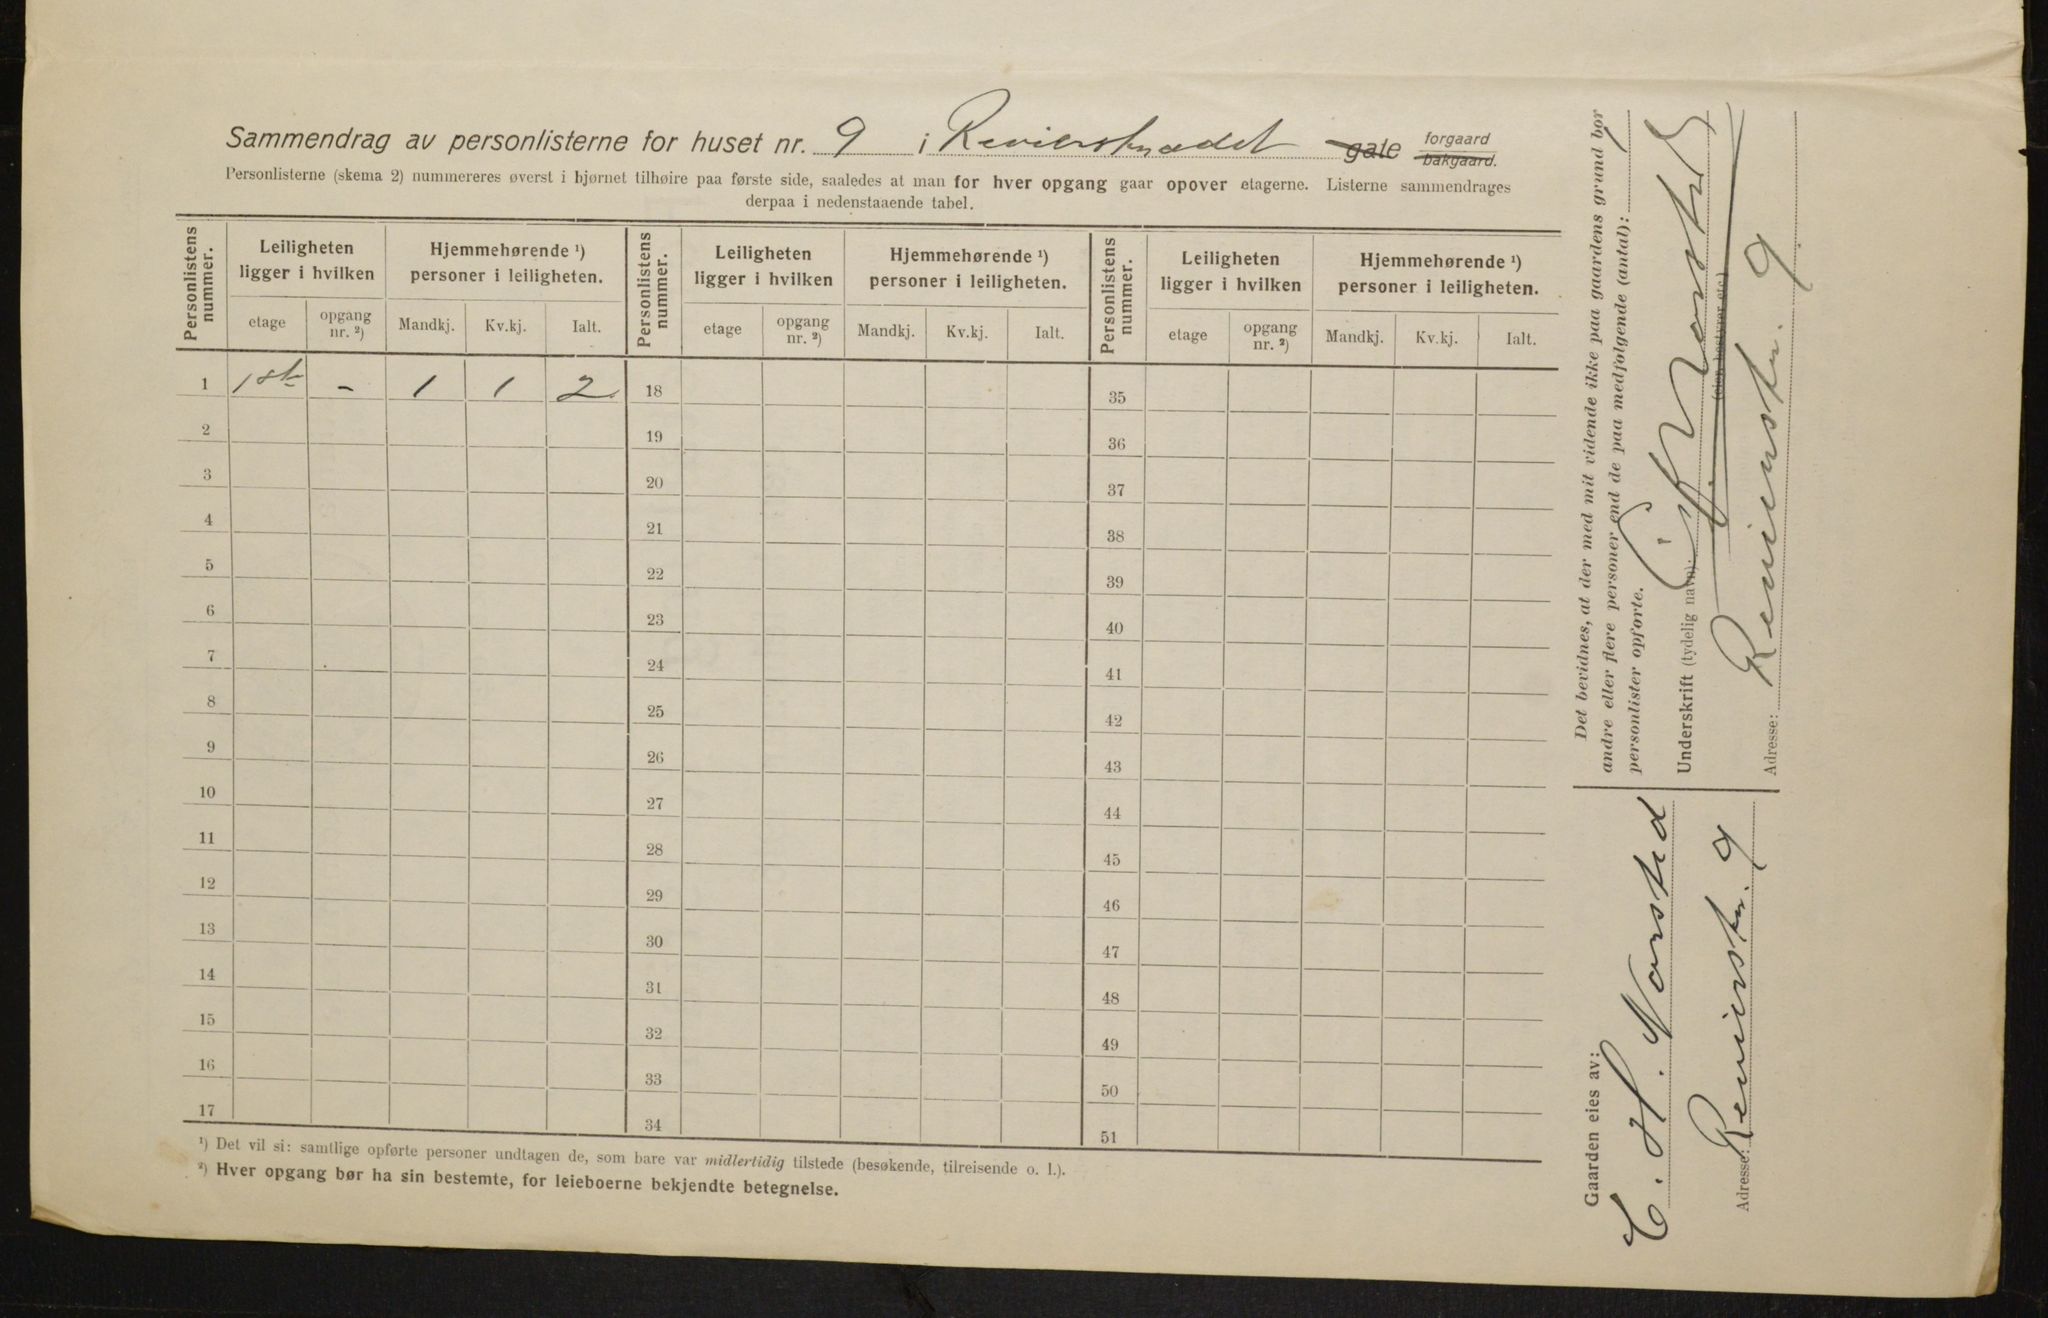 Sammendrag av personlisterne for huset nr. 9 i Revierstrædet gate forgaard bakgaard.
Personlisterne (skema 2) nummereres øverst i hjørnet tilhøire paa første side, saaledes at man for hver opgang gaar opover etagerne. Listerne sammendrages
derpaa i nedenstaaende tabel.
Personlistens nummer. Leiligheten ligger i hvilken Hjemmehørende ¹) personer i leiligheten. Personlistens nummer. Leiligheten ligger i hvilken Hjemmehørende ¹) personer i leiligheten. Personlistens nummer. Leiligheten ligger i hvilken Hjemmehørende ¹) personer i leiligheten.
etage opgang nr. ²) Mandkj. Kv.kj. Ialt. etage opgang nr. ²) Mandkj. Kv.kj. Ialt. etage opgang nr. ²) Mandkj. Kv.kj. Ialt.
1 1ste - 1 1 2 18 35
2 19 36
3 20 37
4 21 38
5 22 39
6 23 40
7 24 41
8 25 42
9 26 43
10 27 44
11 28 45
12 29 46
13 30 47
14 31 48
15 32 49
16 33 50
17 34 51
¹) Det vil si: samtlige opførte personer undtagen de, som bare var midlertidig tilstede (besøkende, tilreisende o. l.).
²) Hver opgang bør ha sin bestemte, for leieboerne bekjendte betegnelse.
Gaarden eies av:
C. H. Norsted
Adresse: Revierstr. 9
Det bevidnes, at der med mit vidende ikke paa gaardens grund bor
andre eller flere personer end de paa medfølgende (antal):
personlister opførte.
Underskrift (tydelig navn): C. H. Norsted
(eier, bestyrer etc.)
Adresse: Revierstr. 9